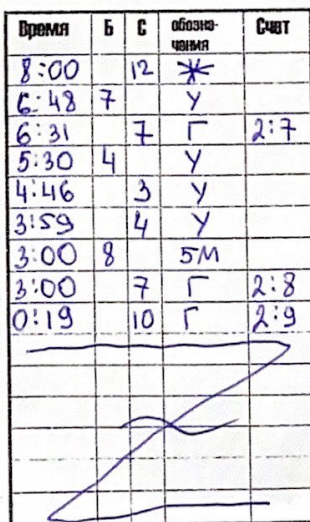 Время Б С обозна-чения Счет
8:00 12 Ж
6:48 7 У
6:31 7 Г 2:7
5:30 4 У
4:46 3 У
3:59 4 У
3:00 8 5М
3:00 7 Г 2:8
0:19 10 Г 2:9